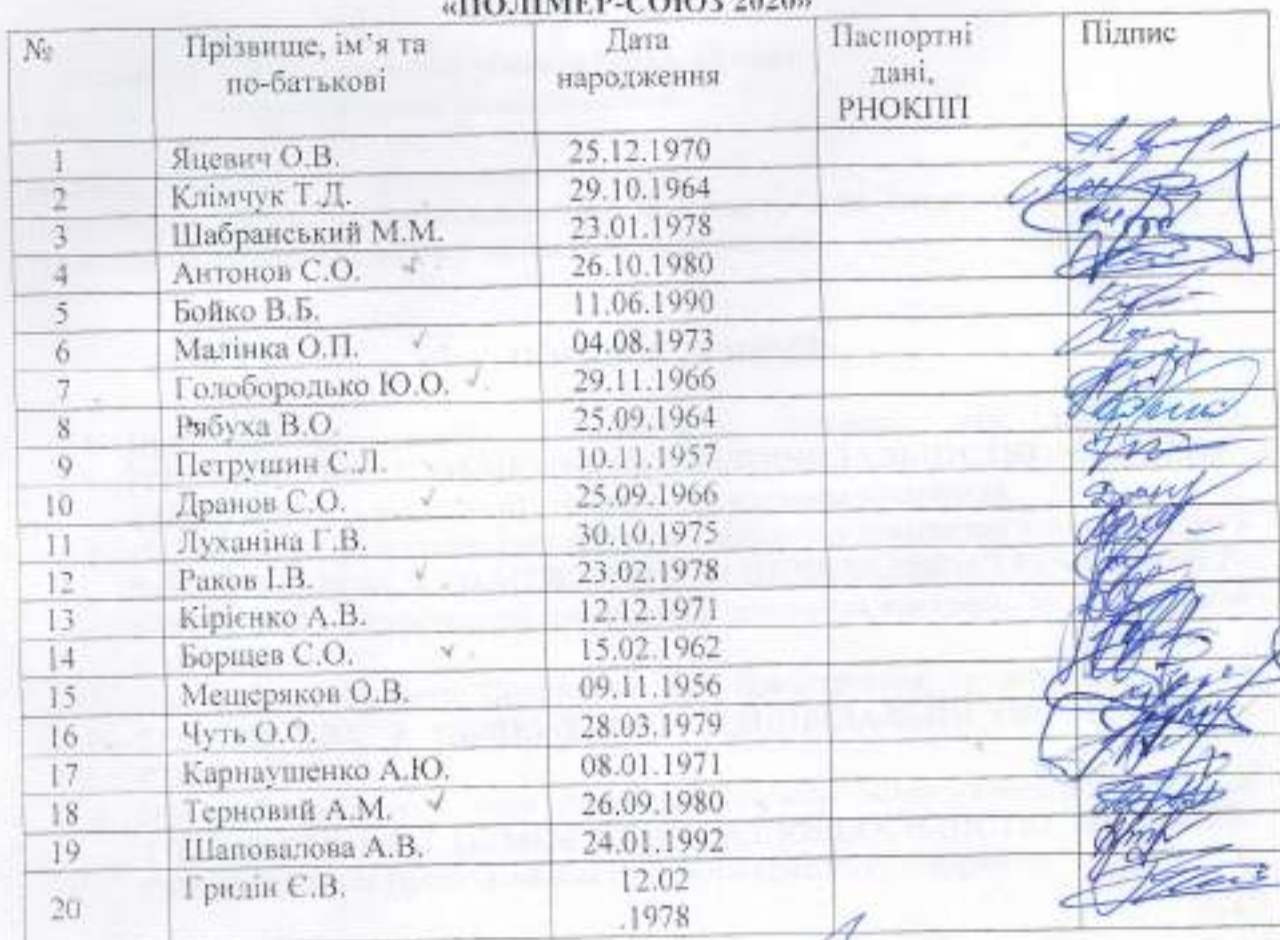 «ПОЛІМЕР-СОЮЗ 2020»
№ Прізвище, ім’я та по-батькові Дата народження Паспортні дані, РНОКПП Підпис
1 Яцевич О.В. 25.12.1970
2 Клімчук Т.Д. 29.10.1964
3 Шабранський М.М. 23.01.1978
4 Антонов С.О. 26.10.1980
5 Бойко В.Б. 11.06.1990
6 Малінка О.П. 04.08.1973
7 Голобородько Ю.О. 29.11.1966
8 Рябуха В.О. 25.09.1964
9 Петрушин С.Л. 10.11.1957
10 Дранов С.О. 25.09.1966
11 Луханіна Г.В. 30.10.1975
12 Раков І.В. 23.02.1978
13 Кірієнко А.В. 12.12.1971
14 Борщев С.О. 15.02.1962
15 Мещеряков О.В. 09.11.1956
16 Чуть О.О. 28.03.1979
17 Карнаушенко А.Ю. 08.01.1971
18 Терновий А.М. 26.09.1980
19 Шаповалова А.В. 24.01.1992
20 Гридін Є.В. 12.02
.1978